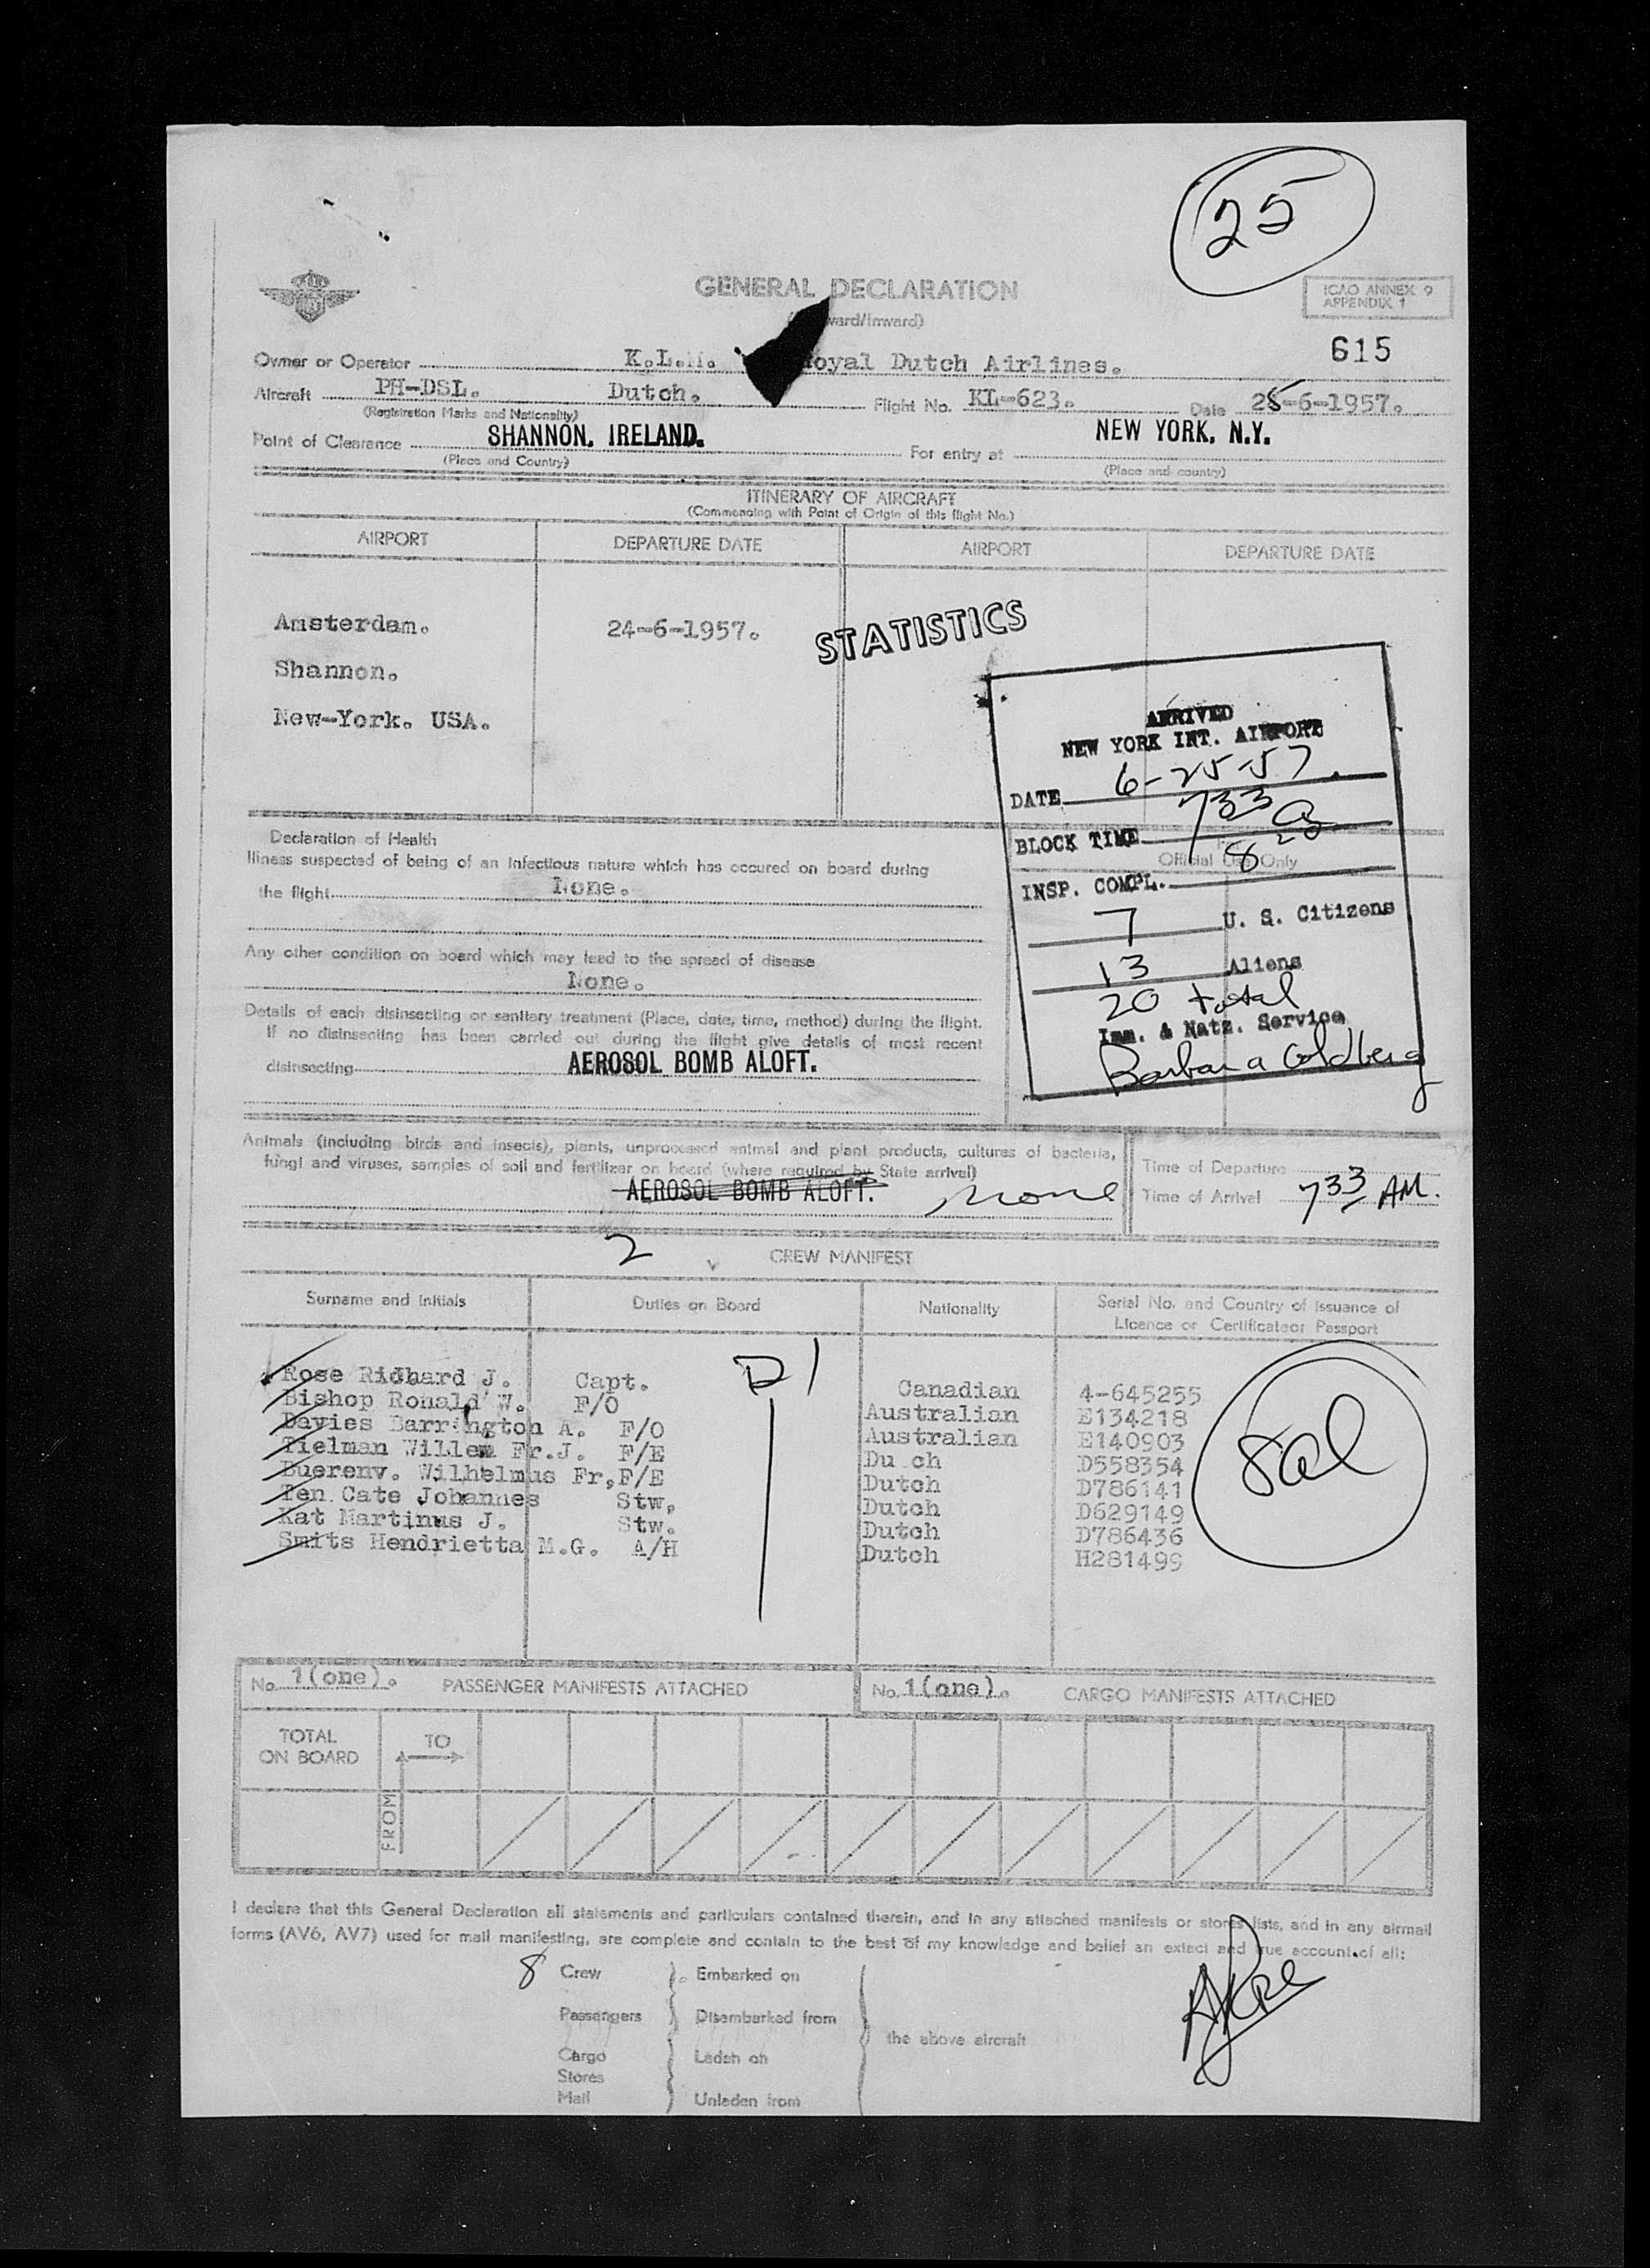 25
GENERAL DECLARATION
ward/Inward)
ICAO ANNEX 9
APPENDIX 1
615
Owner or Operator K.L.M. Royal Dutch Airlines.
Aircraft PH-DSL. Dutch. Flight No. KL-623. Date 25-6-1957.
(Registration Marks and Nationality)
Point of Clearance SHANNON, IRELAND. For entry at NEW YORK, N.Y.
(Place and Country) (Place and country)
ITINERARY OF AIRCRAFT
(Commencing with Point of Origin of this flight No.)
AIRPORT DEPARTURE DATE AIRPORT DEPARTURE DATE
Amsterdam. 24-6-1957.
STATISTICS
Shannon.
New-York. USA.
ARRIVED
NEW YORK INT. AIRPORT
DATE 6-25-57.
BLOCK TIME 733 a
Official Use Only
INSP. COMPL. 820
7 U. S. Citizens
13 Aliens
20 total
Imm. & Natz. Service
Barbara Goldberg
Declaration of Health
Illness suspected of being of an infectious nature which has occured on board during
the flight None.
Any other condition on board which may lead to the spread of disease
None.
Details of each disinsecting or sanitary treatment (Place, date, time, method) during the flight.
If no disinsecting has been carried out during the flight give details of most recent
disinsecting AEROSOL BOMB ALOFT.
Animals (including birds and insects), plants, unprocessed animal and plant products, cultures of bacteria,
fungi and viruses, samples of soil and fertilizer on board (where required by State arrival)
AEROSOL BOMB ALOFT. none
Time of Departure
Time of Arrival 733 AM.
2
CREW MANIFEST
Surname and Initials Duties on Board Nationality Serial No. and Country of Issuance of
Licence or Certificateor Passport
Rose Richard J. Capt. D1 Canadian 4-645255
Bishop Ronald W. F/O Australian E134218
Davies Barrington A. F/O Australian E140903
Tielman Willem Fr.J. F/E Du ch D558354
Buerenv. Wilhelmus Fr, F/E Dutch D786141
Ten Cate Johannes Stw, Dutch D629149
Kat Martinus J. Stw. Dutch D786436
Smits Hendrietta M.G. A/H Dutch H281499
No. 1(one). PASSENGER MANIFESTS ATTACHED
No. 1(one). CARGO MANIFESTS ATTACHED
TOTAL
ON BOARD
TO
FROM
I declare that this General Declaration all statements and particulars contained therein, and in any attached manifests or stores lists, and in any airmail
forms (AV6, AV7) used for mail manifesting, are complete and contain to the best of my knowledge and belief an extact and true account of all:
8 Crew Embarked on
Passengers Disembarked from
the above aircraft
Cargo Laden on
Stores
Mail Unleden from